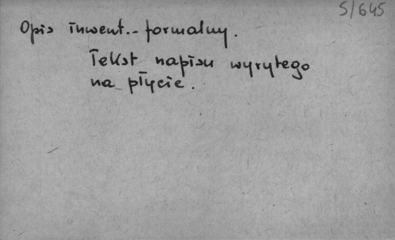 5/645
Opis inwent.- formalny.
Tekst napisu wyrytego
na płycie.